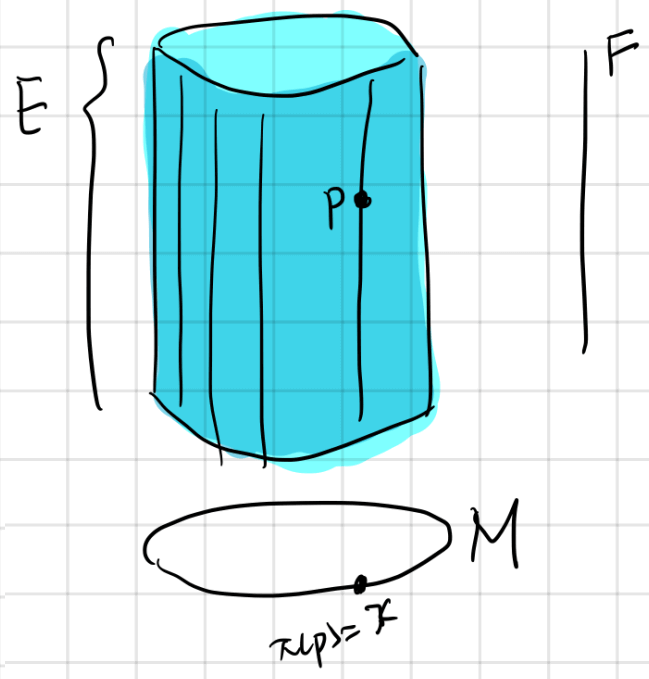 E
F
P
M
π(p)=x